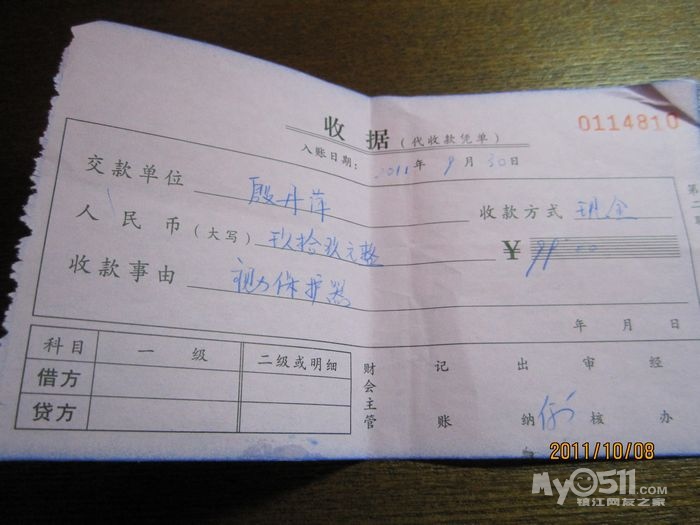 收 据 (代收款凭单) 0114810
入账日期: 2011年 9月 30日
交款单位 殷丹萍 收款方式 现金
人民币(大写) 玖拾玖元整 ¥ 99.00
收款事由 视力保护器
年 月 日
第二
科目 一 级 二级或明细
借方
贷方
财会主管 记账 出纳 审核 经办
2011/10/08
My0511.com
镇江网友之家